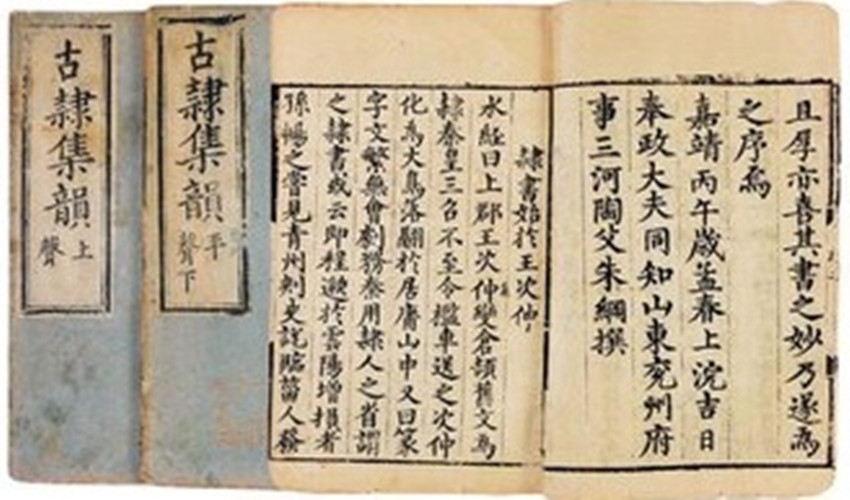 且厚亦喜其書之妙乃遂為
之序焉
嘉靖丙午歲孟春上浣吉日
奉政大夫同知山東兗州府
事三河陶父朱綱撰
隸書始於王次仲
水經曰上郡王次仲變倉頡舊文為
隸秦皇三召不至令檻車送之次仲
化為大鳥落翮於居庸山中又曰篆
字文繁無會劇務秦用隸人之省謂
之隸書或云即程邈於雲陽增損者
孫暢之嘗見青州刺史說臨菑人發
古隸集韻
平聲下
古隸集韻
上聲